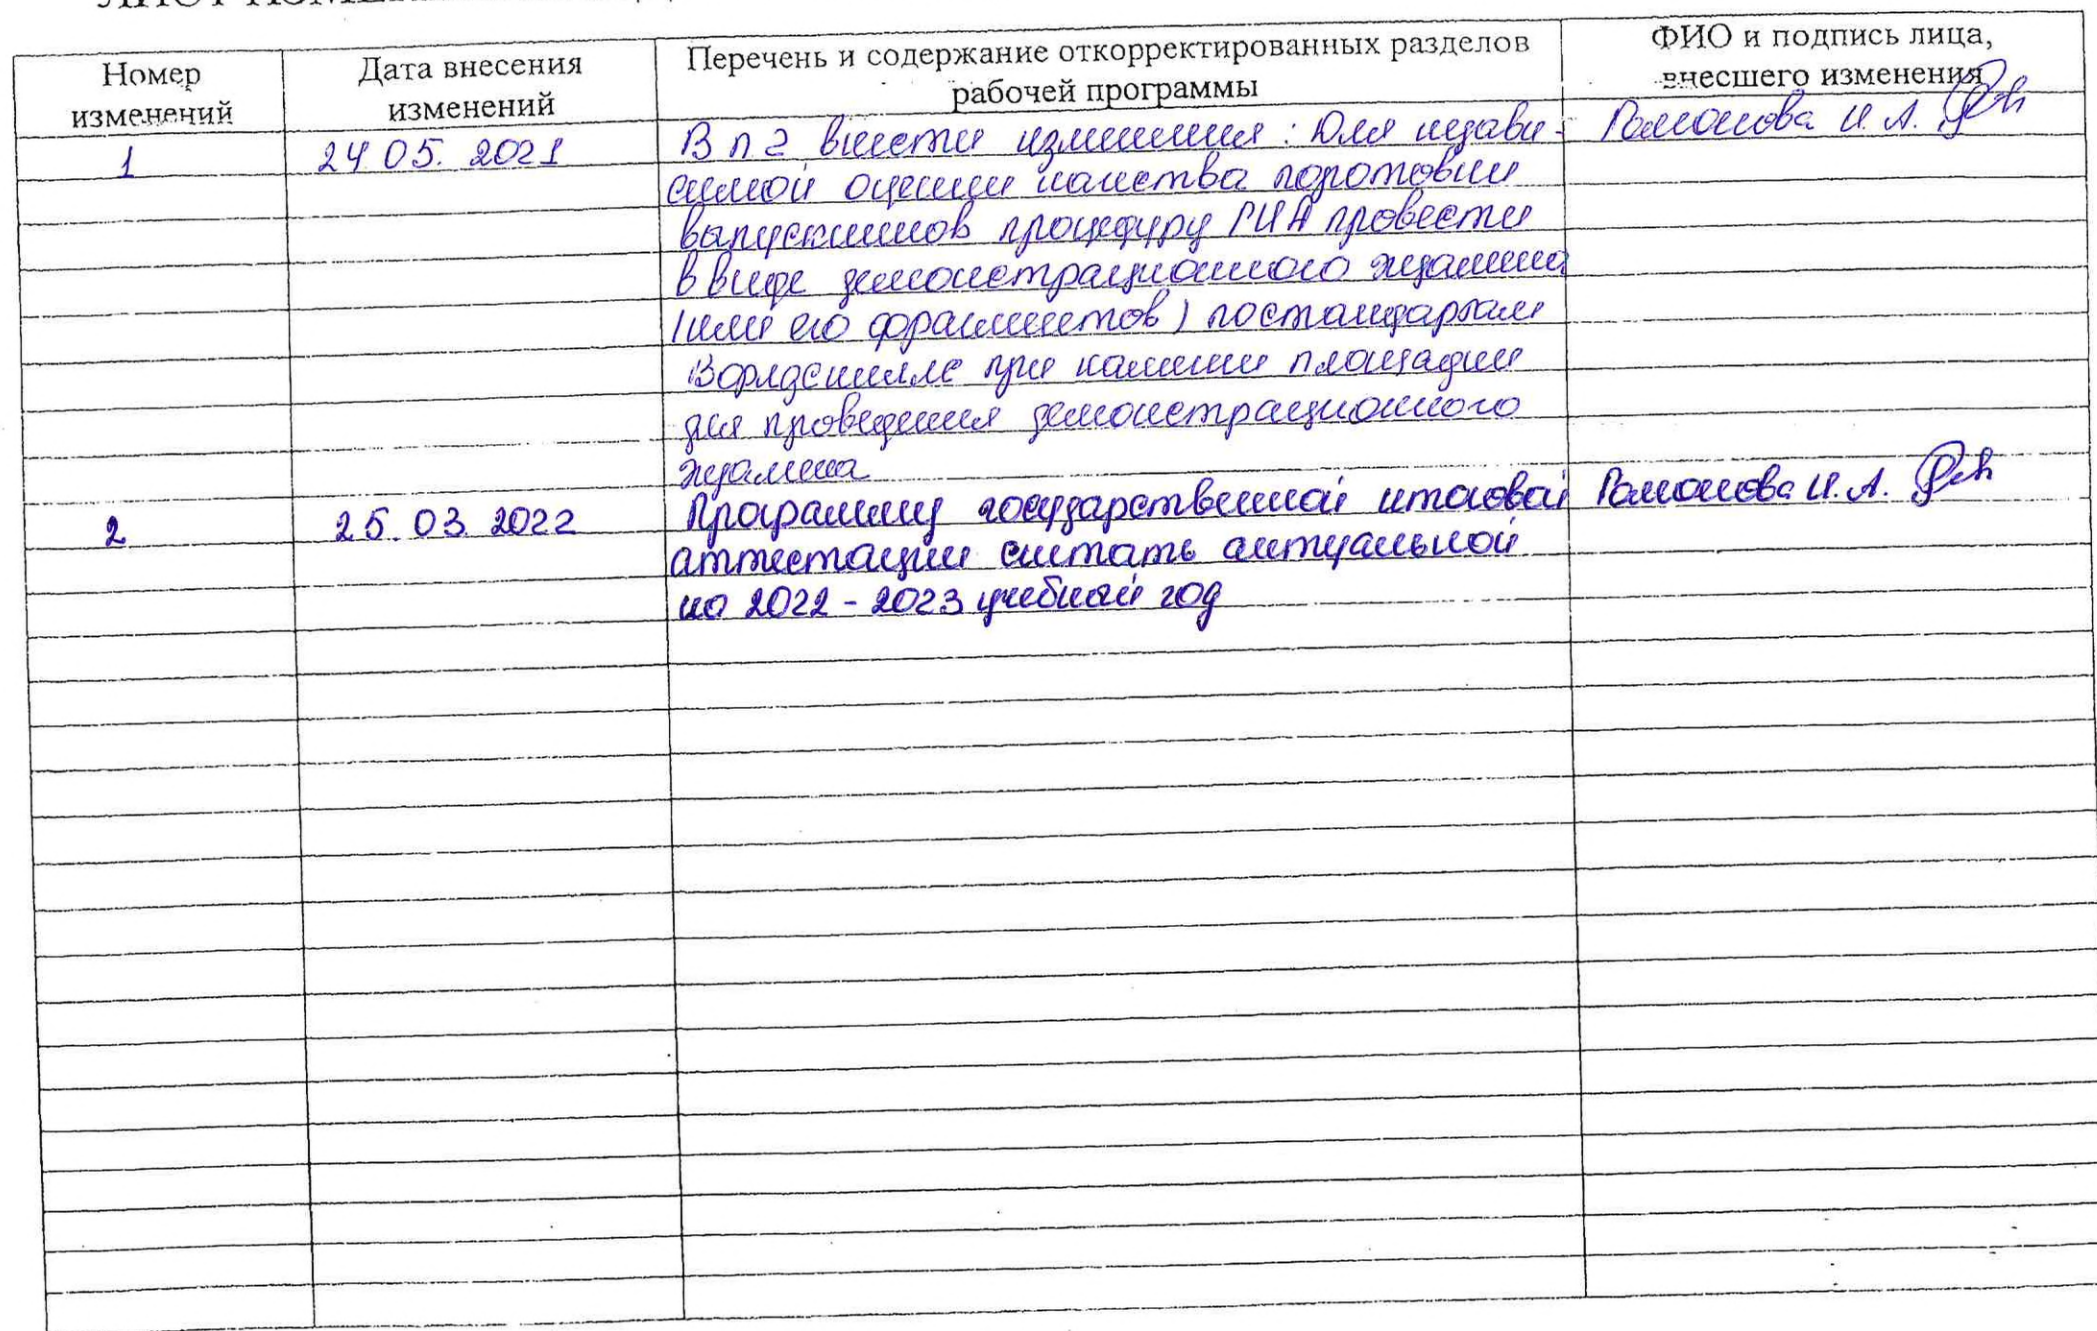 Номер
изменений
Дата внесения
изменений
Перечень и содержание откорректированных разделов
рабочей программы
ФИО и подпись лица,
внесшего изменения
1
24 05. 2021
В п 2 внести изменения: Для незави-
симой оценки качества подготовки
выпускников процедуру ГИА провести
в виде демонстрационного экзамена
(или его фрагментов) по стандартам
Ворлдскиллс при наличии площадки
для проведения демонстрационного
экзамена
Романова И. А.
2
25. 03. 2022
Программу государственной итоговой
аттестации считать актуальной
на 2022 - 2023 учебный год
Романова И. А.